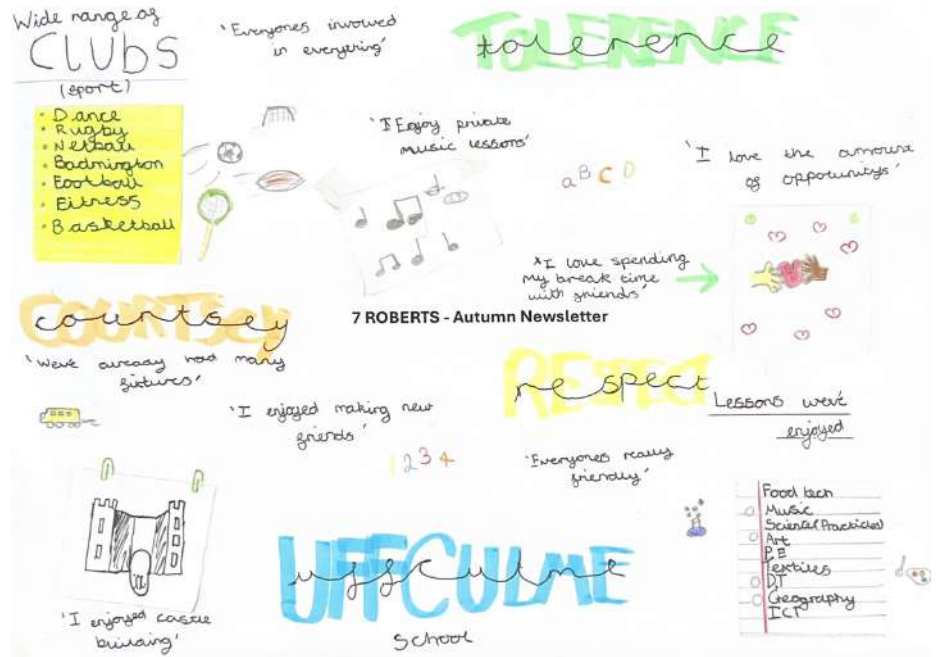 Wide range of
CLUBS
(sport)
• Dance
• Rugby
• Netball
• Badmington
• Football
• Fitness
• Basketball
'Everyones involved
in everything'
TOLERENCE
tolerence
'I Enjoy private
music lessons'
a B C D
'I love the amount
of oppotunitys'
'I love spending
my break time
with friends'
COURTSEY
courtsey
7 ROBERTS - Autumn Newsletter
'We've already had many
fixtures'
RESPECT
respect
'I enjoyed making new
friends'
1 2 3 4
'Everyones really
friendly'
Lessons we've
enjoyed
Food tech
Music
Science(Practicles)
Art
P.E
Textiles
DT
Geography
ICT
'I enjoyed castle
building'
UFFCULME
uffculme
School